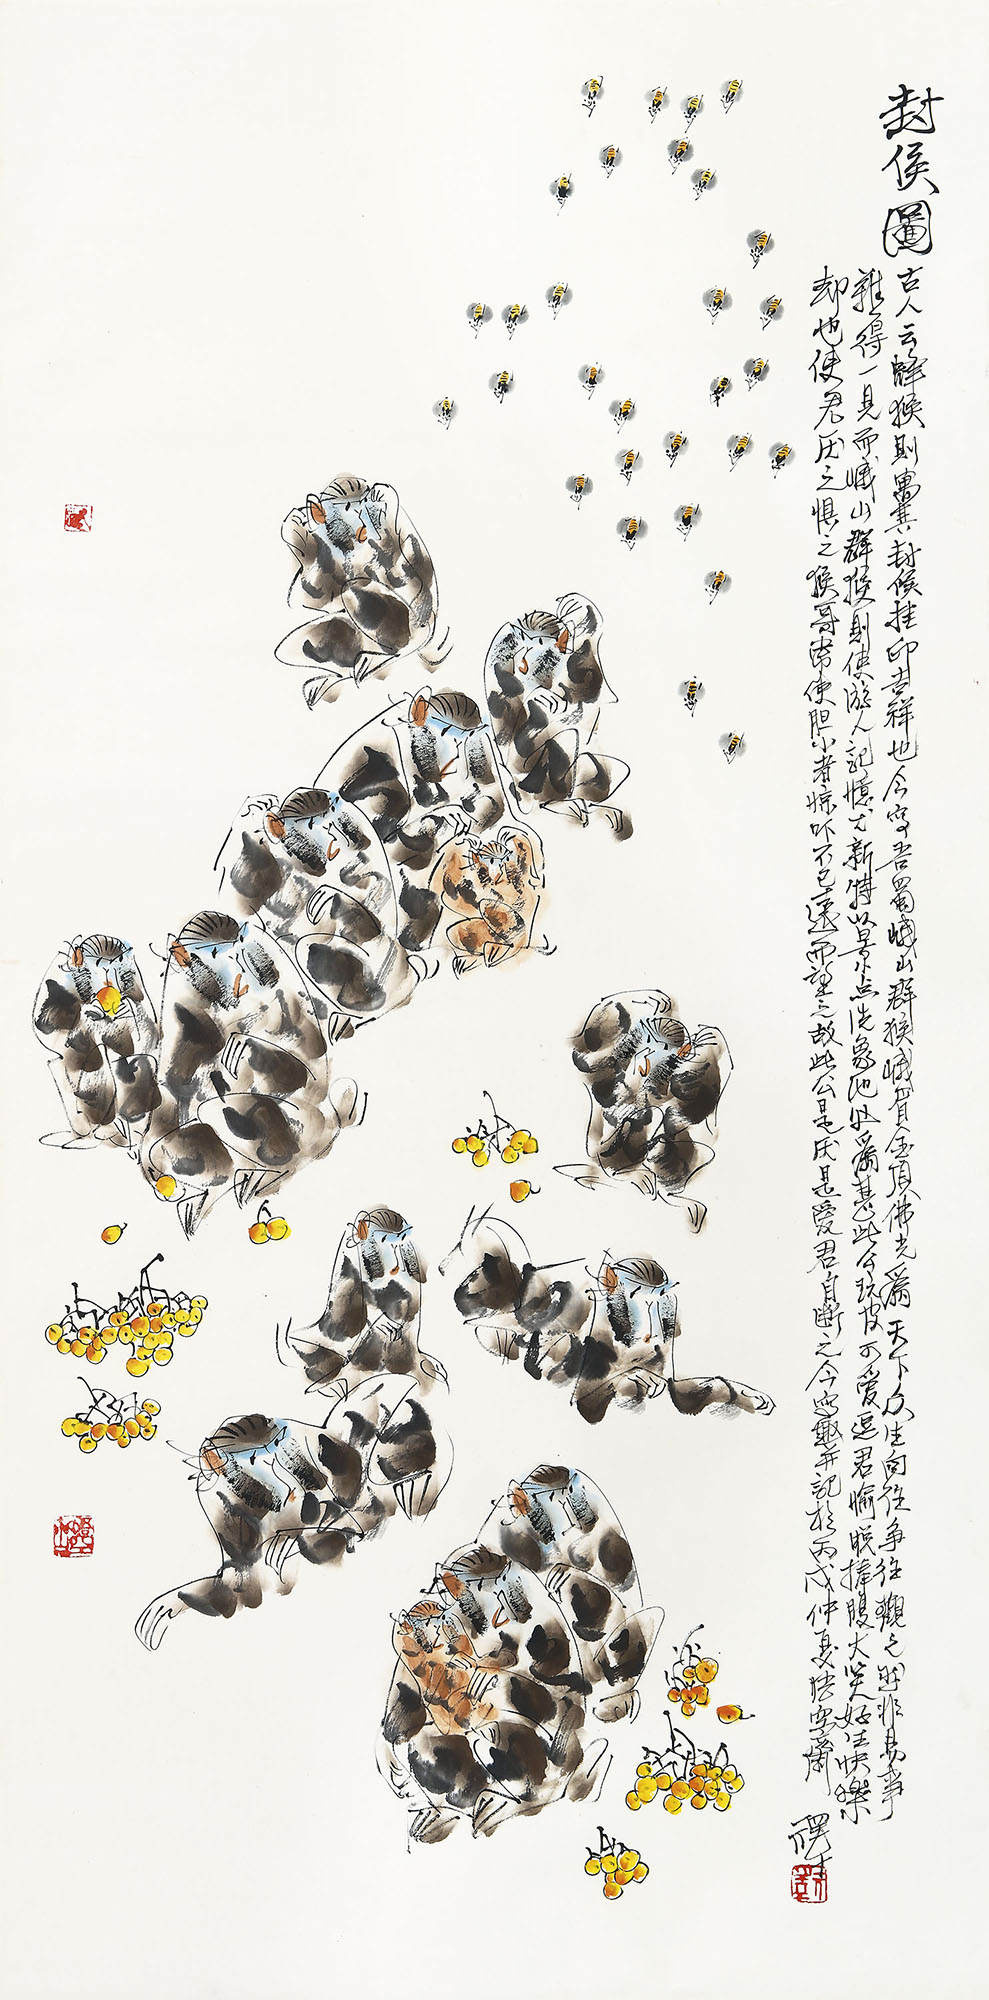 封侯圖
古人云蜂猴則寓其封侯挂印吉祥也今寫吾蜀峨山群猴峨眉金頂佛光爲天下众生向往争往觀之然非易事
難得一見而峨山群猴則使游人記憶尤新特以景点洗象池处爲甚此公玩皮可愛逗君愉晚捧腹大笑好生快樂
却也使君厌之惧之猴哥常使胆小者惊吓不已遠而望之故此公是厌是愛君自断之今寫趣并記於丙戌仲夏悟空斋